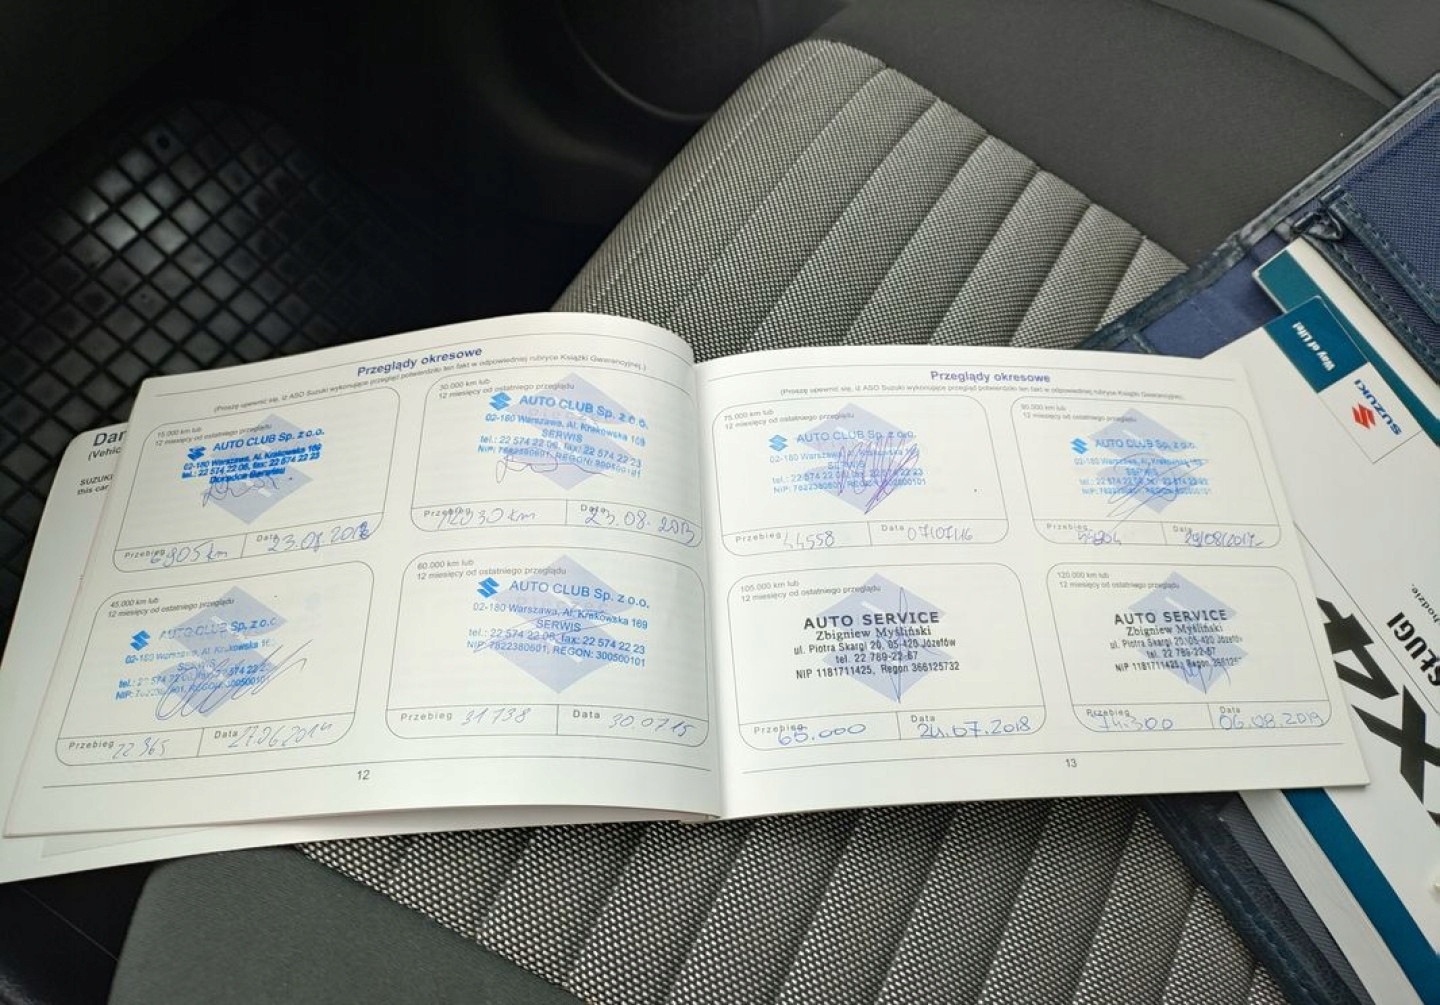 Dan
(Vehic
SUZUKI
this car
Przeglądy okresowe
(Proszę upewnić się, iż ASO Suzuki wykonujące przegląd potwierdziło ten fakt w odpowiedniej rubryce Książki Gwarancyjnej.)
15.000 km lub
12 miesięcy od ostatniego przeglądu
AUTO CLUB Sp. z o.o.
02-180 Warszawa, Al. Krakowska 169
tel.: 22 574 22 06, fax: 22 574 22 23
Doradca Serwisu
Przebieg 6905 km
Data
30.000 km lub
12 miesięcy od ostatniego przeglądu
AUTO CLUB Sp. z o.o.
02-180 Warszawa, Al. Krakowska 169
SERWIS
tel.: 22 574 22 06, fax: 22 574 22 23
NIP: 7822380601, REGON: 300500101
Przebieg 12030 km
Data 23.08.2013
45.000 km lub
12 miesięcy od ostatniego przeglądu
AUTO CLUB Sp. z o.o.
02-180 Warszawa, Al. Krakowska 16
SERWIS
tel.: 22 574 22
Przebieg 22 365
Data 27.06.2014
60.000 km lub
12 miesięcy od ostatniego przeglądu
AUTO CLUB Sp. z o.o.
02-180 Warszawa, Al. Krakowska 169
SERWIS
tel.: 22 574 22 06, fax: 22 574 22 23
NIP: 7822380601, REGON: 300500101
Przebieg 31 738
Data 30.07.15
12
Przeglądy okresowe
(Proszę upewnić się, iż ASO Suzuki wykonujące przegląd potwierdziło ten fakt w odpowiedniej rubryce Książki Gwarancyjnej)
75.000 km lub
12 miesięcy od ostatniego przeglądu
AUTO CLUB Sp. z o.o.
02-180 Warszawa, Al. Krakowska 169
SERWIS
tel.: 22 574 22 06, fax: 22 574 22 23
NIP: 7822380601, REGON: 300500101
Przebieg 44558
Data 07/07/16
90.000 km lub
12 miesięcy od ostatniego przeglądu
AUTO CLUB Sp. z o.o.
02-180 Warszawa, Al. Krakowska 169
SERWIS
Przebieg
Data 29/08/2017
105.000 km lub
12 miesięcy od ostatniego przeglądu
AUTO SERVICE
Zbigniew Myśliński
ul. Piotra Skargi 20, 05-420 Józefów
tel. 22 789-22-67
NIP 1181711425, Regon 366125732
Przebieg 65.000
Data 24.07.2018
120.000 km lub
12 miesięcy od ostatniego przeglądu
AUTO SERVICE
Zbigniew Myśliński
ul. Piotra Skargi 20, 05-420 Józefów
tel. 22 789-22-67
NIP 1181711425, Regon
Przebieg 74.300
Data 06.08.2019
13
Way of Life!
SUZUKI
SŁUGI
hodzie.